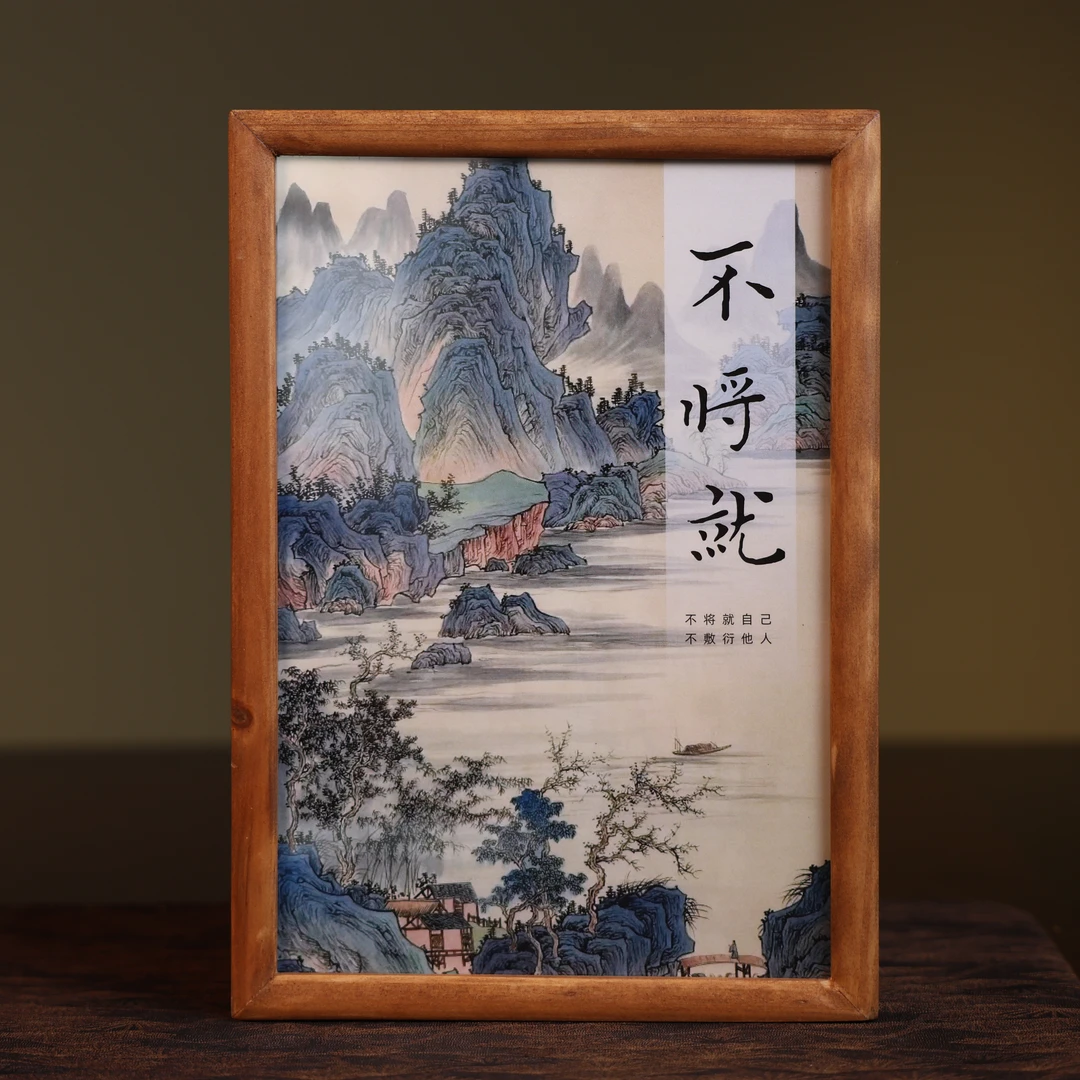 不将就
不将就自己
不敷衍他人